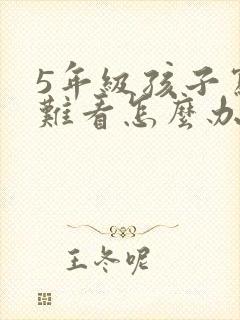 5年級孩子
難看怎麼办
王冬呢